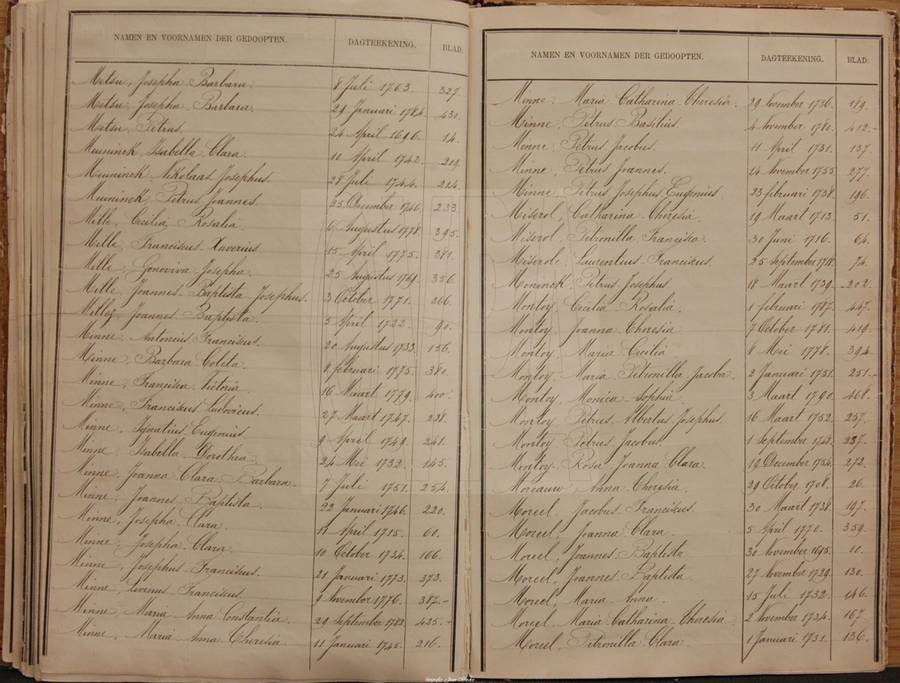 NAMEN EN VOORNAMEN DER GEDOOPTEN. DAGTEEKENING. BLAD.
Metsu, Josepha Barbara. 8 Juli 1763. 327.
Metsu, Josepha Barbara. 29 Januari 1784. 430.
Metsu, Petrus. 24 April 1696. 14.
Meuninck, Isabella Clara. 10 April 1742.
Meuninck, Nikolaas Josephus. 28 Juli 1744. 214.
Meuninck, Petrus Joannes. 25 December 1746. 233
Mille, Cecilia Rosalia. 6 Augustus 1778. 395.
Mille, Franciscus Xaverius. 15 April 1775. 381.
Mille, Genoviva Josepha. 25 Augustus 1769. 356.
Mille, Joannes Baptista Josephus. 3 October 1771. 366.
Joannes Baptista. 5 April 1722. 90.
Minne, Antonius Franciscus. 20 Augustus 1733. 156.
Minne, Barbara Coleta. 8 februari 1775. 380.
Minne, Francisca Victoria 16 Maart 1779. 400.
Minne, Franciscus Ludovicus. 27 Maart 1747. 238.
Minne, Ignatius Eugenius. 9 April 1749. 241.
Minne, Isabella Dorothea. 24 Mei 1732. 145.
Minne, Joanna Clara Barbara. 7 Juli 1751. 254.
Minne, Joannes Baptista. 22 Januari 1746. 220.
Minne, Josepha Clara. 17 April 1715. 60.
Minne, Josepha Clara. 10 October 1724. 106.
Minne, Josephus Franciscus. 21 Januari 1773. 373.
Minne, Livinus Franciscus. 9 November 1776. 387.-
Minne, Maria Anna Constantia. 29 September 1783. 425.-
Minne, Maria Anna Theresia. 11 Januari 1745. 216.
NAMEN EN VOORNAMEN DER GEDOOPTEN. DAGTEEKENING. BLAD.
Minne, Maria Catharina Theresia. 29 November 1736. 189.
Minne, Petrus Basilius. 4 November 1780. 412.-
Minne, Petrus Jacobus. 11 April 1731. 137.
Minne, Petrus Joannes. 24 November 1755 277.
Minne, Petrus Josephus Eugenius 23 februari 1738. 196.
Miserol, Catharina Theresia. 19 Maart 1713 51.
Miserol, Petronilla Francisca. 30 Juni 1716. 64.
Miserole, Laurentius Franciscus. 25 September 1718. 74.
Moninck, Petrus Josephus 18 Maart 1739. 202.
Montoy, Cecilia Rosalia. 1 februari 1787. 447.
Montoy, Joanna Theresia 7 October 1781. 419.
Montoy, Maria Cecilia 8 Mei 1778. 394.
Montoy, Maria Petronilla Jacoba. 2 Januari 1751. 251.-
Montoy, Monica Sophia. 3 Maart 1790. 468.
Montoy, Petrus Albertus Josephus. 16 Maart 1752. 257.
Montoy, Petrus Jacobus 1 September 1748. 237.-
Montoy, Rosa Joanna Clara. 19 December 1754. 272.
Moreauw, Anna Theresia. 29 October 1708. 26.
Moreel, Jacobus Franciscus. 30 Maart 1738. 197.
Moreel, Joanna Clara. 5 April 1770. 359.
Moreel, Joannes Baptista 30 November 1695. 10.
Moreel, Joannes Baptista. 27 November 1729. 130.
Moreel, Maria Anna. 15 Juli 1732. 146.
Moreel, Maria Catharina Theresia. 2 November 1734. 167
Moreel, Petronilla Clara. 1 Januari 1731. 136.